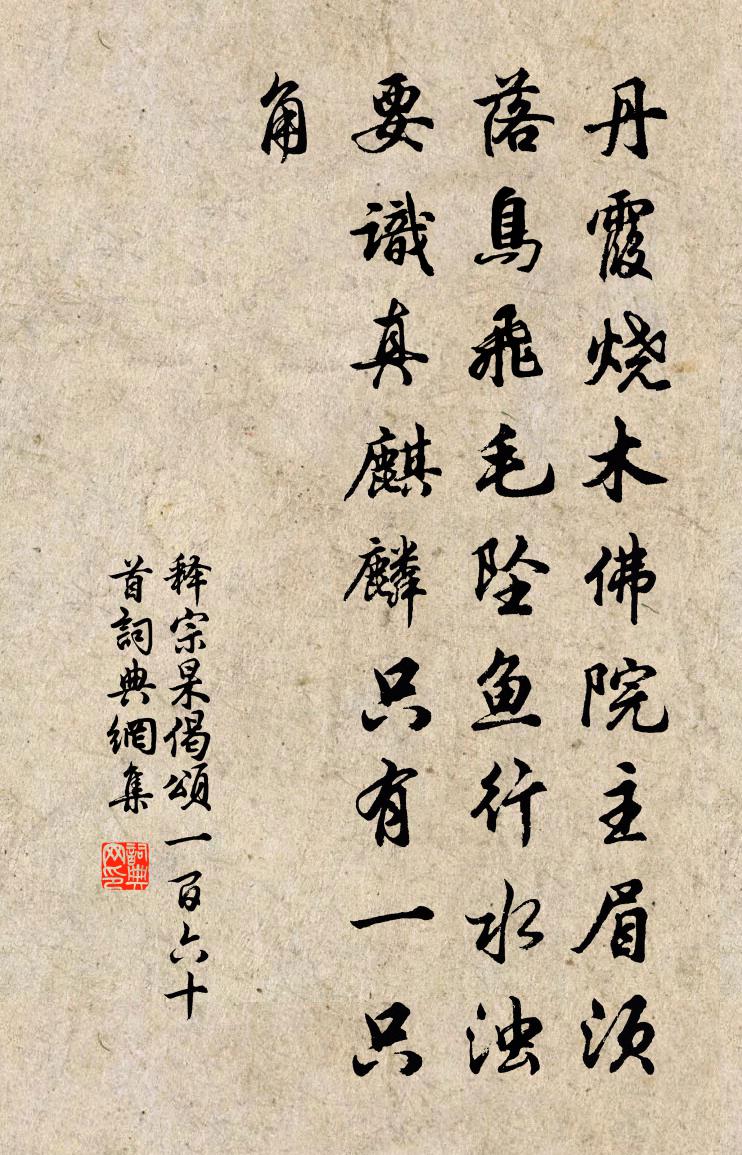 丹霞烧木佛院主眉须
落鳥飛毛坠鱼行水浊
要識真麒麟只有一只
角
释宗杲偈頌一百六十
首詞典網集
詞典
网印